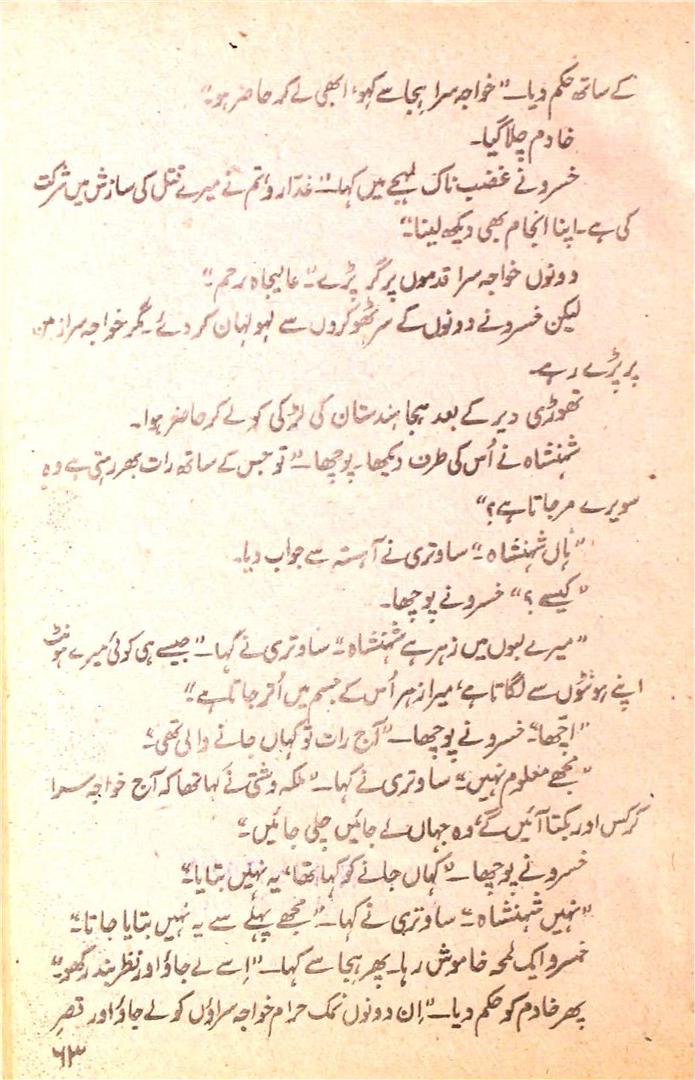 کے ساتھ حکم دیا۔ ”خواجہ سرا ہیجا سے کہو، ابھی لے کر حاضر ہو۔“
خادم چلا گیا۔
خسرو نے غضب ناک لہجے میں کہا۔ ”غدّارو، تم نے میرے قتل کی سازش میں شرکت
کی ہے۔ اپنا انجام بھی دیکھ لینا۔“
دونوں خواجہ سرا قدموں پر گر پڑے۔ ”عالیجاہ رحم۔“
لیکن خسرو نے دونوں کے سر ٹھوکروں سے لہولہان کر دئے۔ مگر خواجہ سرا زمین
پر پڑے رہے۔
تھوڑی دیر کے بعد ہیجا ہندستان کی لڑکی کو لے کر حاضر ہوا۔
شہنشاہ نے اُس کی طرف دیکھا۔ پوچھا۔ ”تو جس کے ساتھ رات بھر رہتی ہے وہ
سویرے مر جاتا ہے؟“
”ہاں شہنشاہ۔“ ساوتری نے آہستہ سے جواب دیا۔
”کیسے؟“ خسرو نے پوچھا۔
”میرے لبوں میں زہر ہے شہنشاہ۔“ ساوتری نے کہا۔ ”جیسے ہی کوئی میرے ہونٹ
اپنے ہونٹوں سے لگاتا ہے، میرا زہر اُس کے جسم میں اُتر جاتا ہے۔“
”اچّھا۔“ خسرو نے پوچھا۔ ”آج رات تو کہاں جانے والی تھی۔“
”مجھے معلوم نہیں۔“ ساوتری نے کہا۔ ”ملکہ وشتی نے کہا تھا کہ آج خواجہ سرا
کرکس اور بکتا آئیں گے، وہ جہاں لے جائیں چلی جائیں۔“
خسرو نے پوچھا۔ ”کہاں جانے کو کہا تھا، یہ نہیں بتایا۔“
”نہیں شہنشاہ۔“ ساوتری نے کہا۔ ”مجھے پہلے سے یہ نہیں بتایا جاتا۔“
خسرو ایک لمحہ خاموش رہا۔ پھر ہیجا سے کہا۔ ”اِسے لے جاؤ اور نظر بند رکھو۔“
پھر خادم کو حکم دیا۔ ”اِن دونوں نمک حرام خواجہ سراؤں کو لے جاؤ اور قصرِ
۶۳